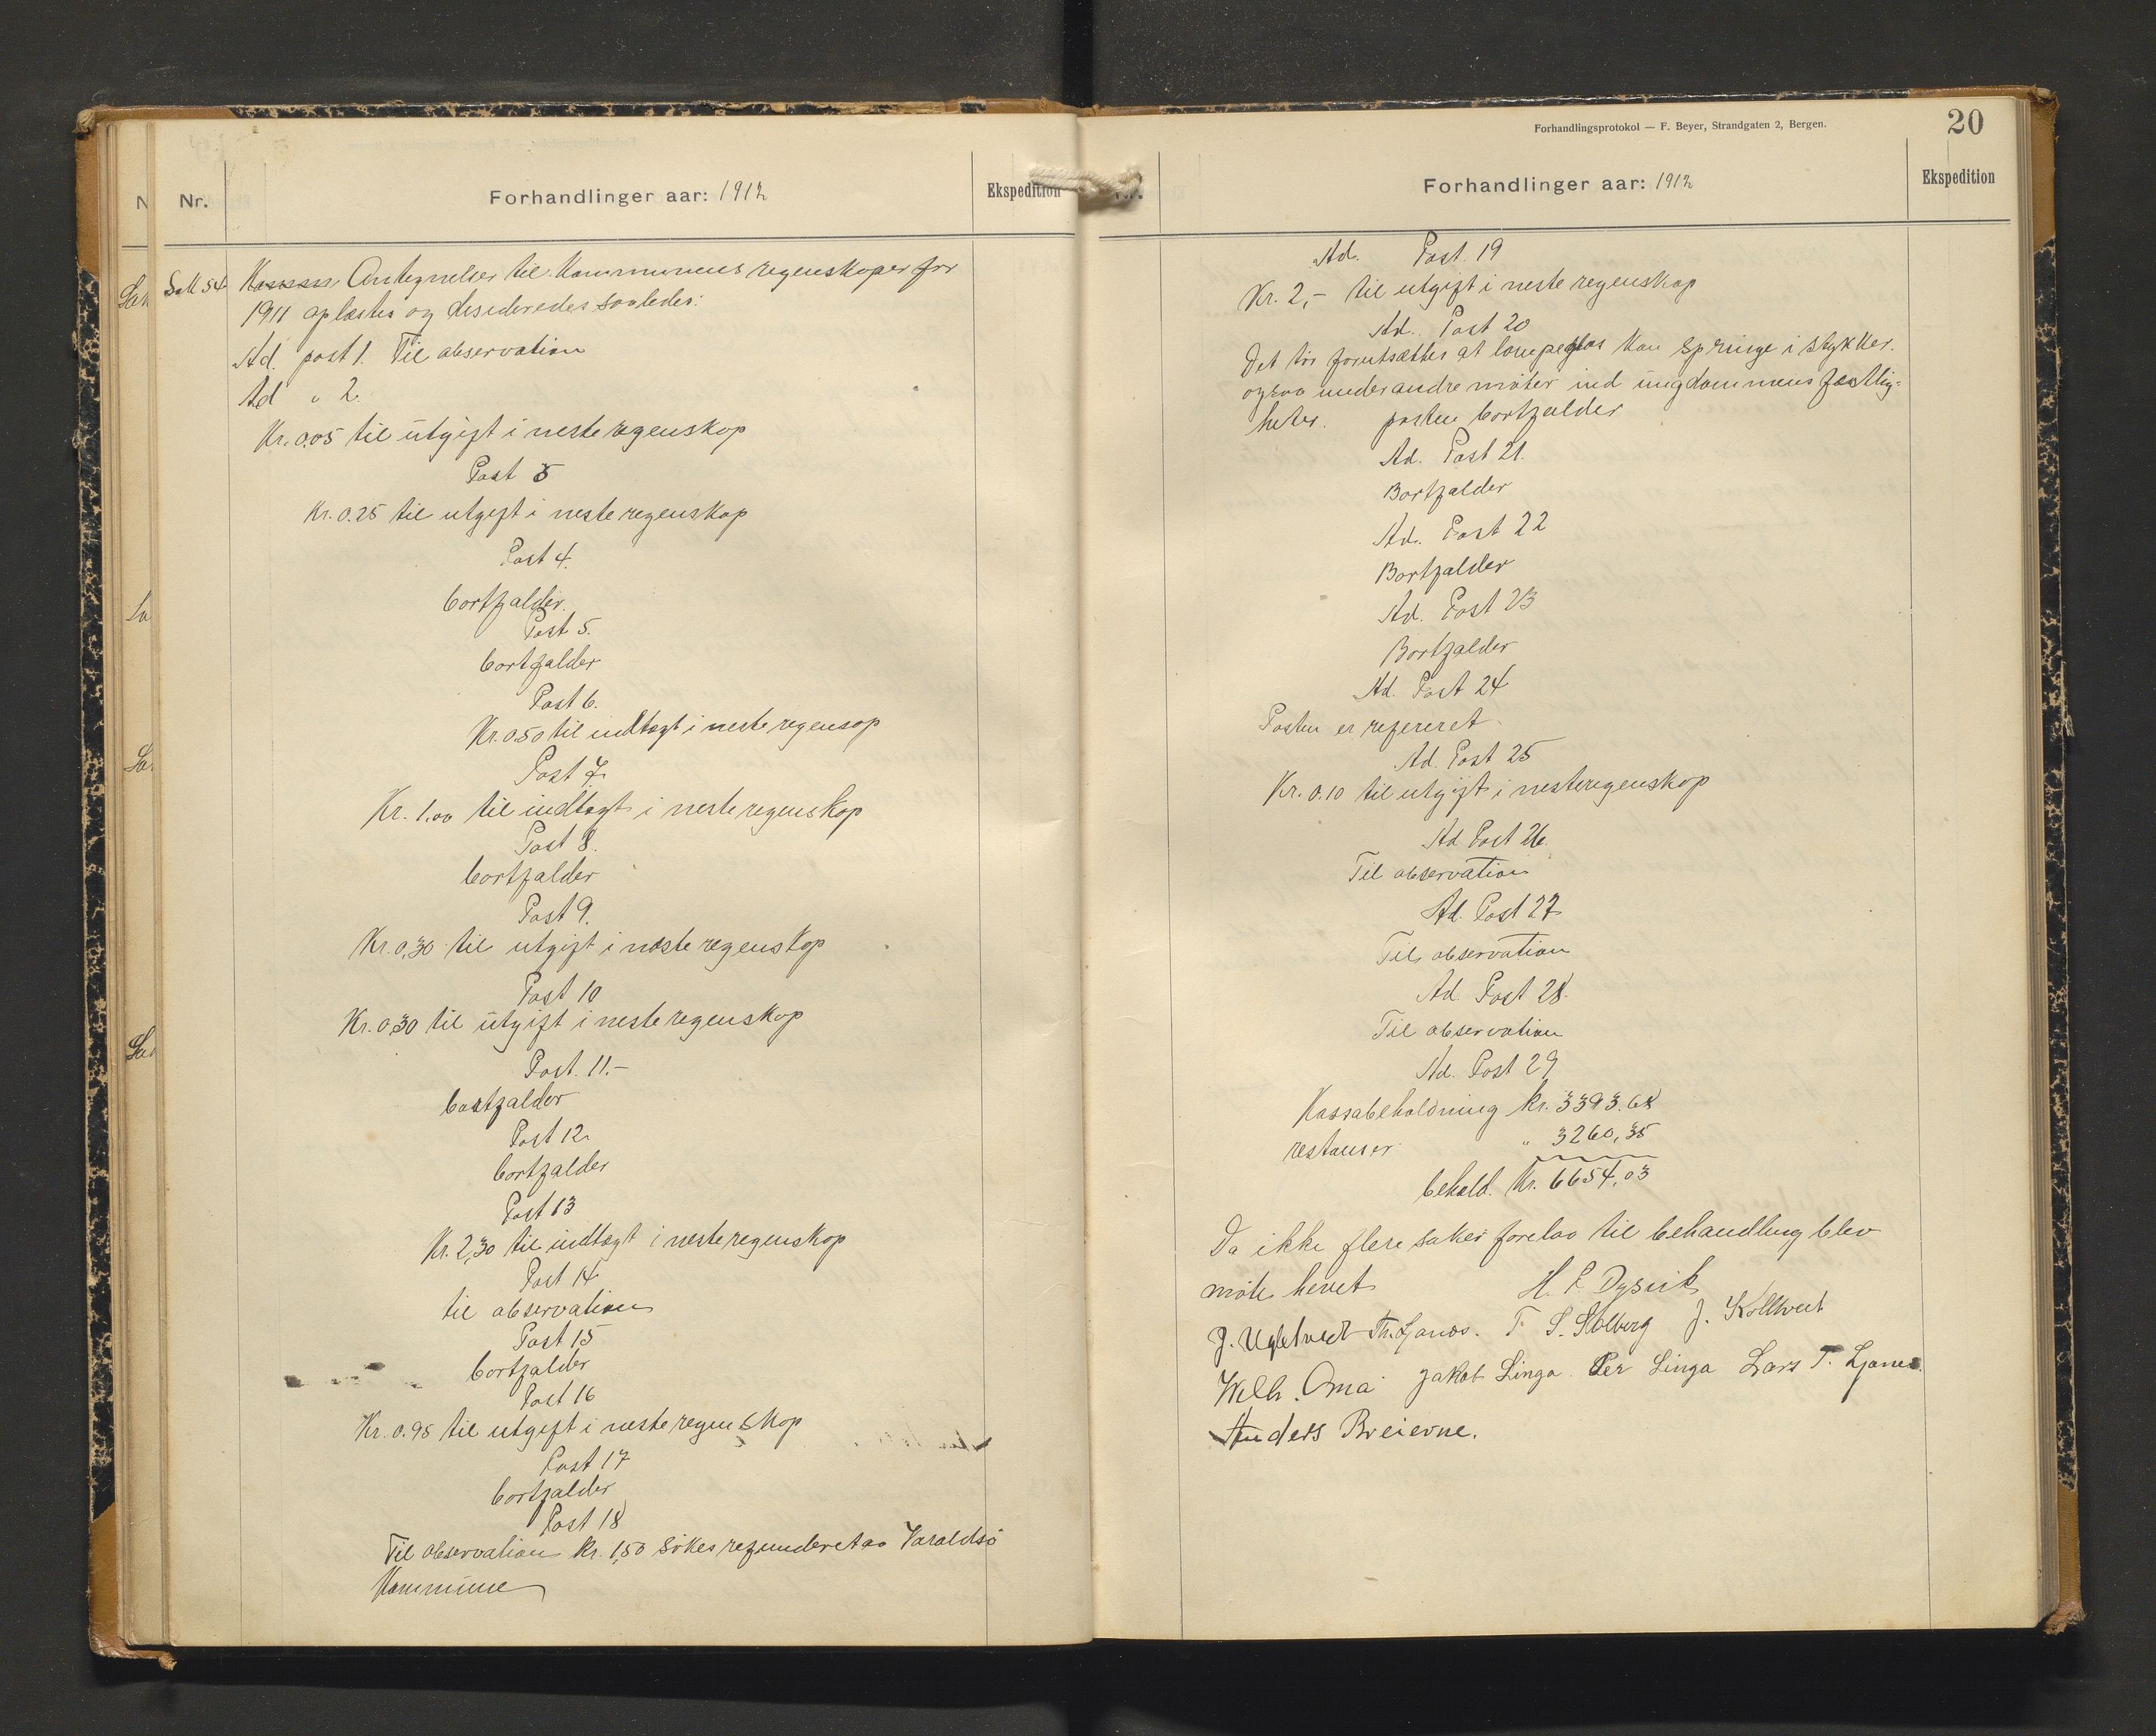 Nr.
Forhandlinger aar: 1912
Ekspedition
Sak 54
Antegnelser til Kommunens regenskaper for
1911 oplæstes og desideredes saaledes:
Ad. post 1. Til observation
Ad " 2.
Kr. 0.05 til utgift i neste regenskap
Post 3
Kr. 0.25 til utgift i neste regenskap
Post 4.
bortfalder.
Post 5.
bortfalder
Post 6.
Kr. 0.50 til indtægt i neste regensop
Post 7.
Kr. 1.00 til indtægt i neste regenskap
Post 8.
bortfalder
Post 9.
Kr. 0,30 til utgift i næste regenskap
Post 10
Kr. 0,30 til utgift i neste regenskap
Post. 11.-
bortfalder
Post 12.
bortfalder
Post 13
Kr. 2,30 til indtægt i neste regenskap
Post 14
til observation
Post 15
bortfalder
Post 16
Kr. 0.95 til utgift i neste regenskap
Post 17
bortfalder
Post 18
Til observation Kr. 1,50 søkes refunderet av Varaldsø
Kommune
Forhandlingsprotokol — F. Beyer, Strandgaten 2, Bergen.
20
Nr.
Forhandlinger aar: 1912
Ekspedition
Ad. Post. 19
Kr. 2,- til utgift i neste regenskap
Ad. Post 20
Det tør forutsættes at lampeglas kan springe i stykker.
ogsaa under andre møter ind ungdommens festlig=
heter. posten bortfalder
Ad. Post 21.
Bortfalder
Ad. Post 22
Bortfalder
Ad. Post 23
Bortfalder
Ad. Post 24
Posten er refereret
Ad. Post 25
Kr. 0.10 til utgift i neste regenskap
Ad Post 26.
Til observation
Ad. Post 27
Til observation
Ad. Post 28.
Til observation
Ad. Post 29
Kassabeholdning kr. 3393.68
restanser " 3260,35
behold. Kr. 6654,03
Da ikke flere saker forelaa til behandling blev
møte hevet
J. S. Solberg
Wilh. Oma Jakob Linga Per Linga Lars T. Ljones.
Anders Breievne.